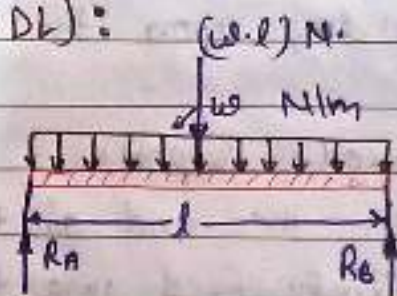 DL):
(w.l) N.
w N/m
l
RA
RB